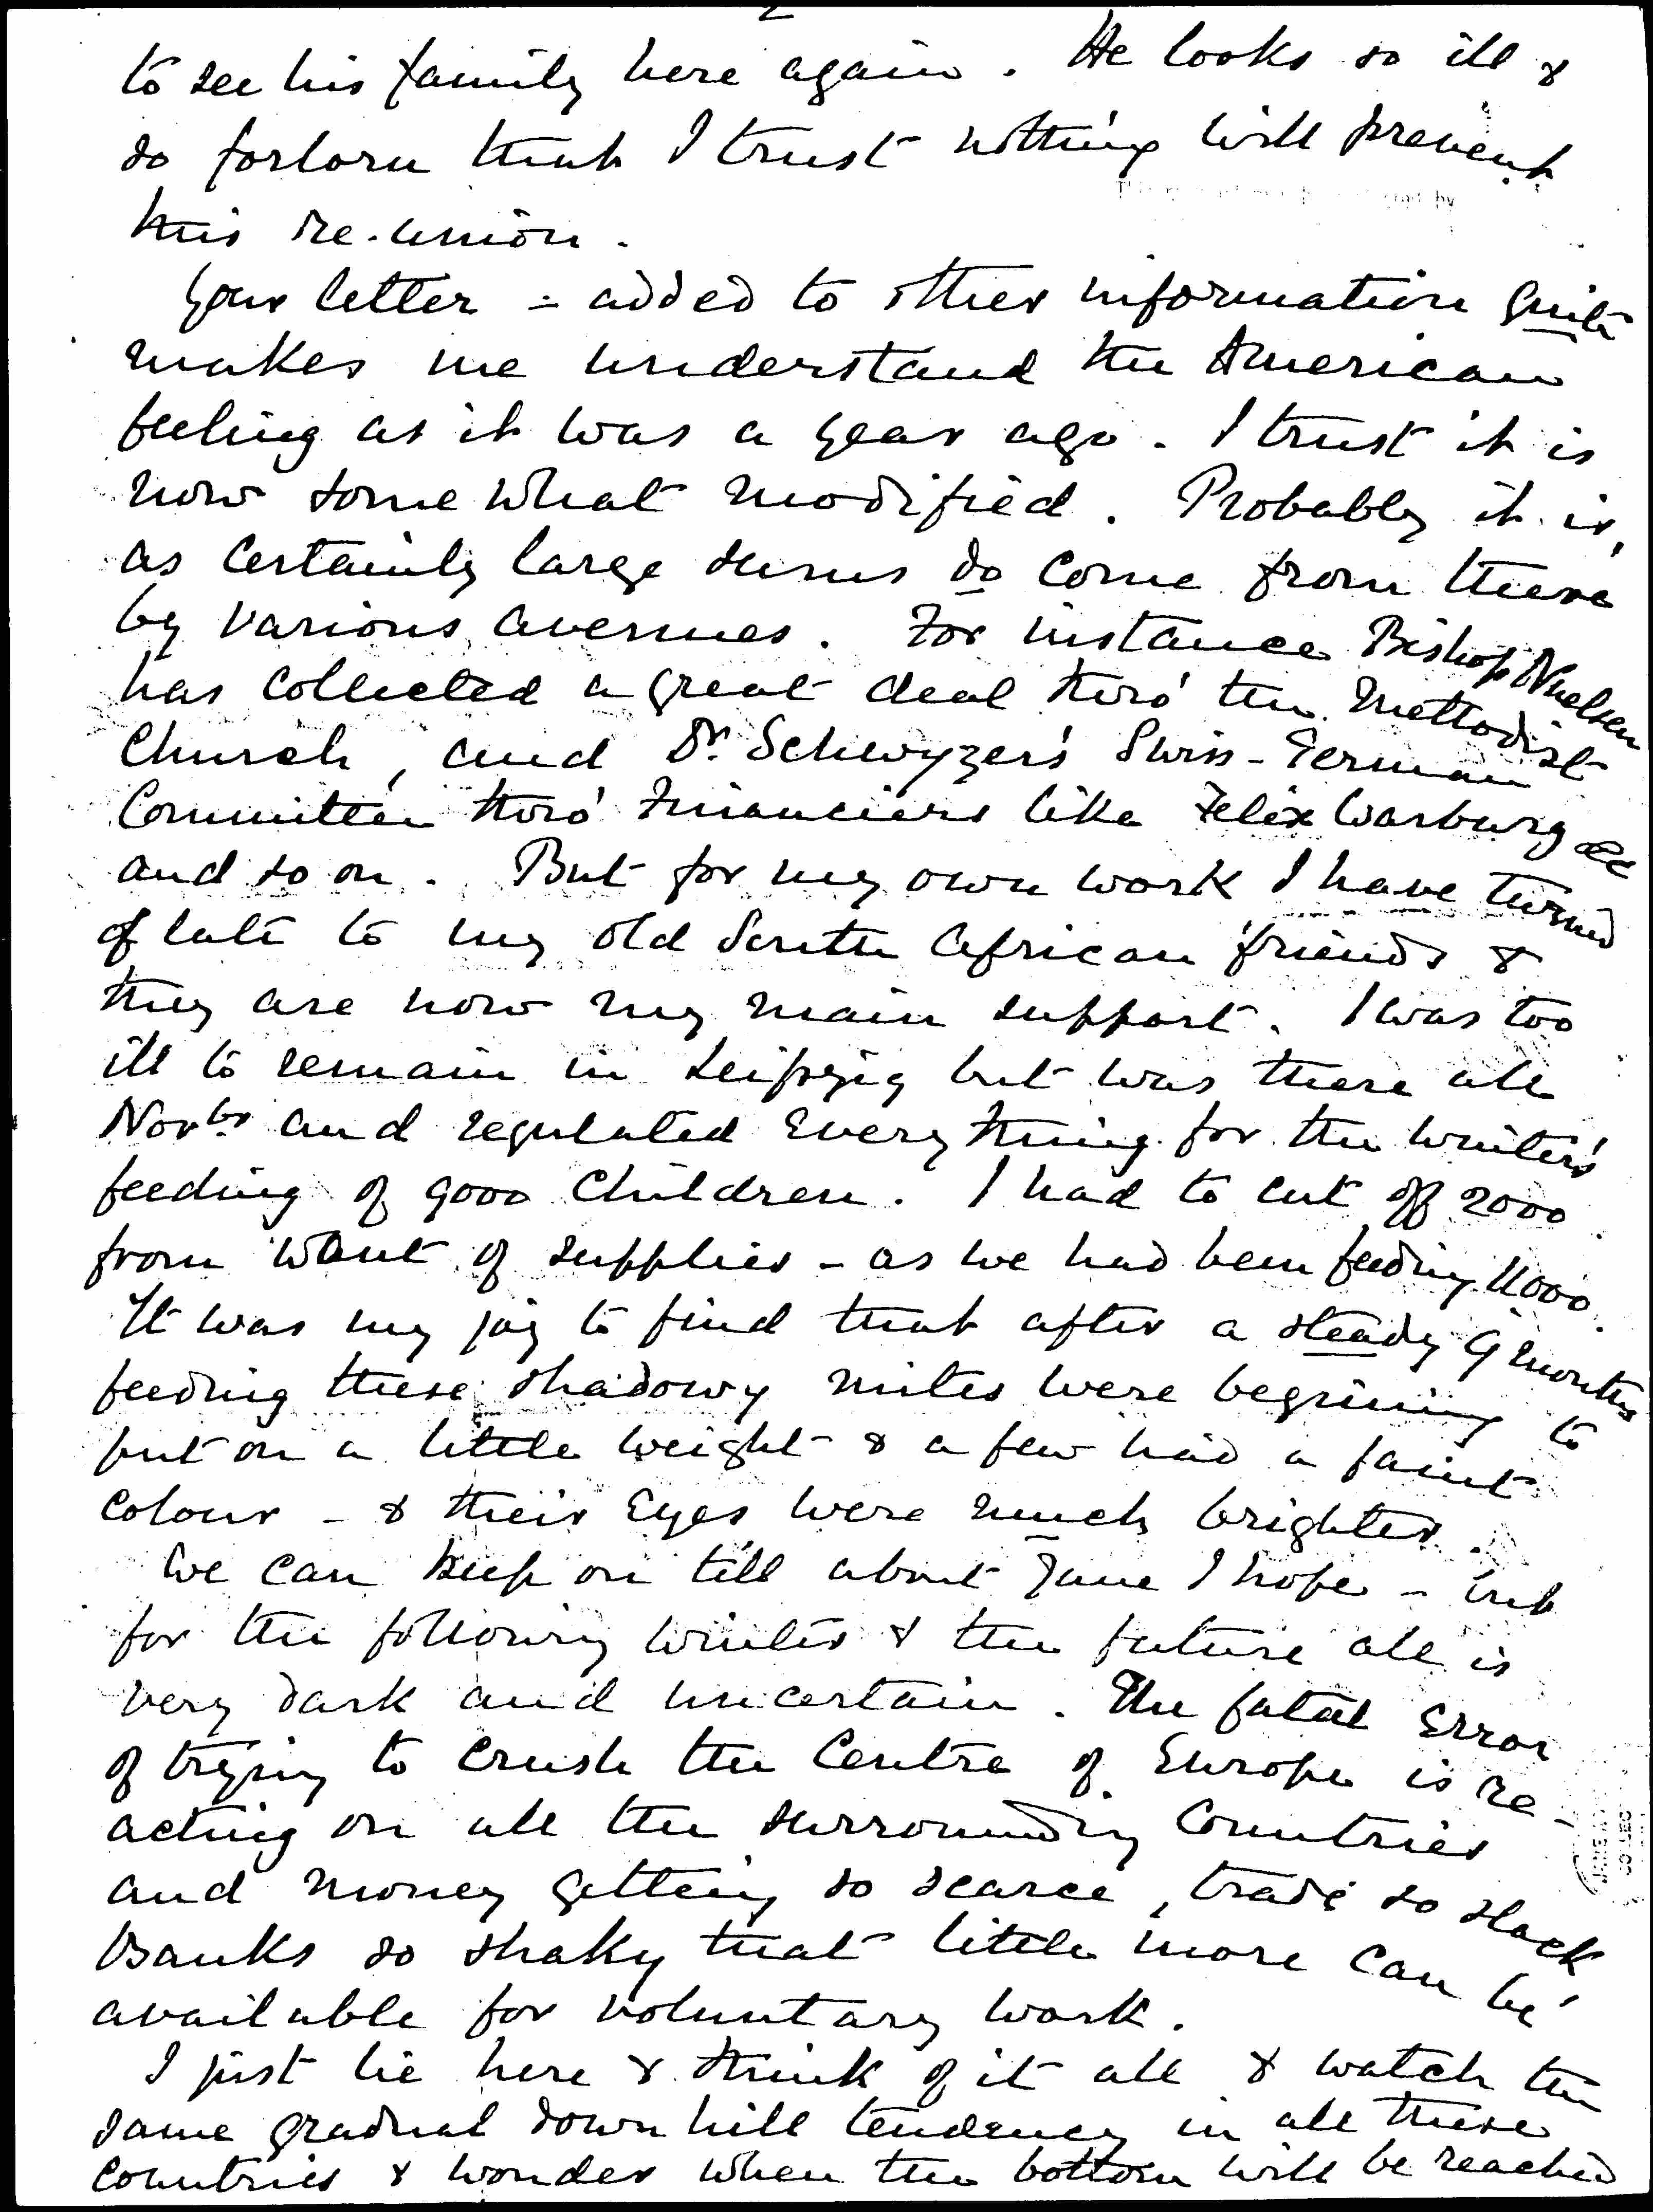 2
to see his family here again. He looks so ill &
so forlorn that I trust nothing will prevent
this re-union.
Your letter - added to other information quite
makes me understand the American
feeling as it was a year ago. I trust it is
now somewhat modified. Probably it is,
as certainly large sums do come from there
by various avenues. For instance Bishop Nuelsen
has collected a great deal thro' the Methodist
Church, and Dr. Schwyzer's Swiss-German
Committee thro' Financiers like Felix Warburg &c
and so on. But for my own work I have turned
of late to my old South African friends &
they are now my main support. I was too
ill to remain in Leipzig but was there all
Novbr and regulated everything for the winter's
feeding of 9000 children. I had to cut off 2000
from want of supplies - as we had been feeding 11000.
It was my joy to find that after a steady 9 months
feeding these shadowy mites were begining to
put on a little weight & a few had a faint
colour - & their eyes were much brighter.
We can keep on till about June I hope - but
for the following winter & the future all is
very dark and uncertain. The fatal error
of trying to crush the Centre of Europe is re-
acting on all the surrounding Countries
and money getting so scarce, trade so slack,
Banks so shaky that little more can be
available for voluntary work.
I just lie here & think of it all & watch the
same gradual downhill tendency in all these
countries & wonder when the bottom will be reached